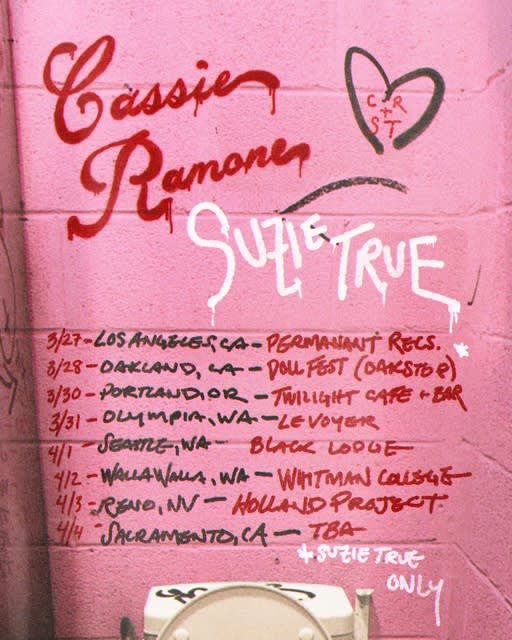 Cassie
Ramone
C + R
S T
SUZIE TRUE
3/27 - LOS ANGELES, CA - PERMANANT RECS.
*
3/28 - OAKLAND, CA - DOLL FEST (OAKSTOP)
3/30 - PORTLAND, OR - TWILIGHT CAFE + BAR
3/31 - OLYMPIA, WA - LE VOYEUR
4/1 - SEATTLE, WA - BLACK LODGE
4/2 - WALLA WALLA, WA - WHITMAN COLLEGE
4/3 - RENO, NV - HOLLAND PROJECT
4/4 - SACRAMENTO, CA - TBA
* SUZIE TRUE
ONLY